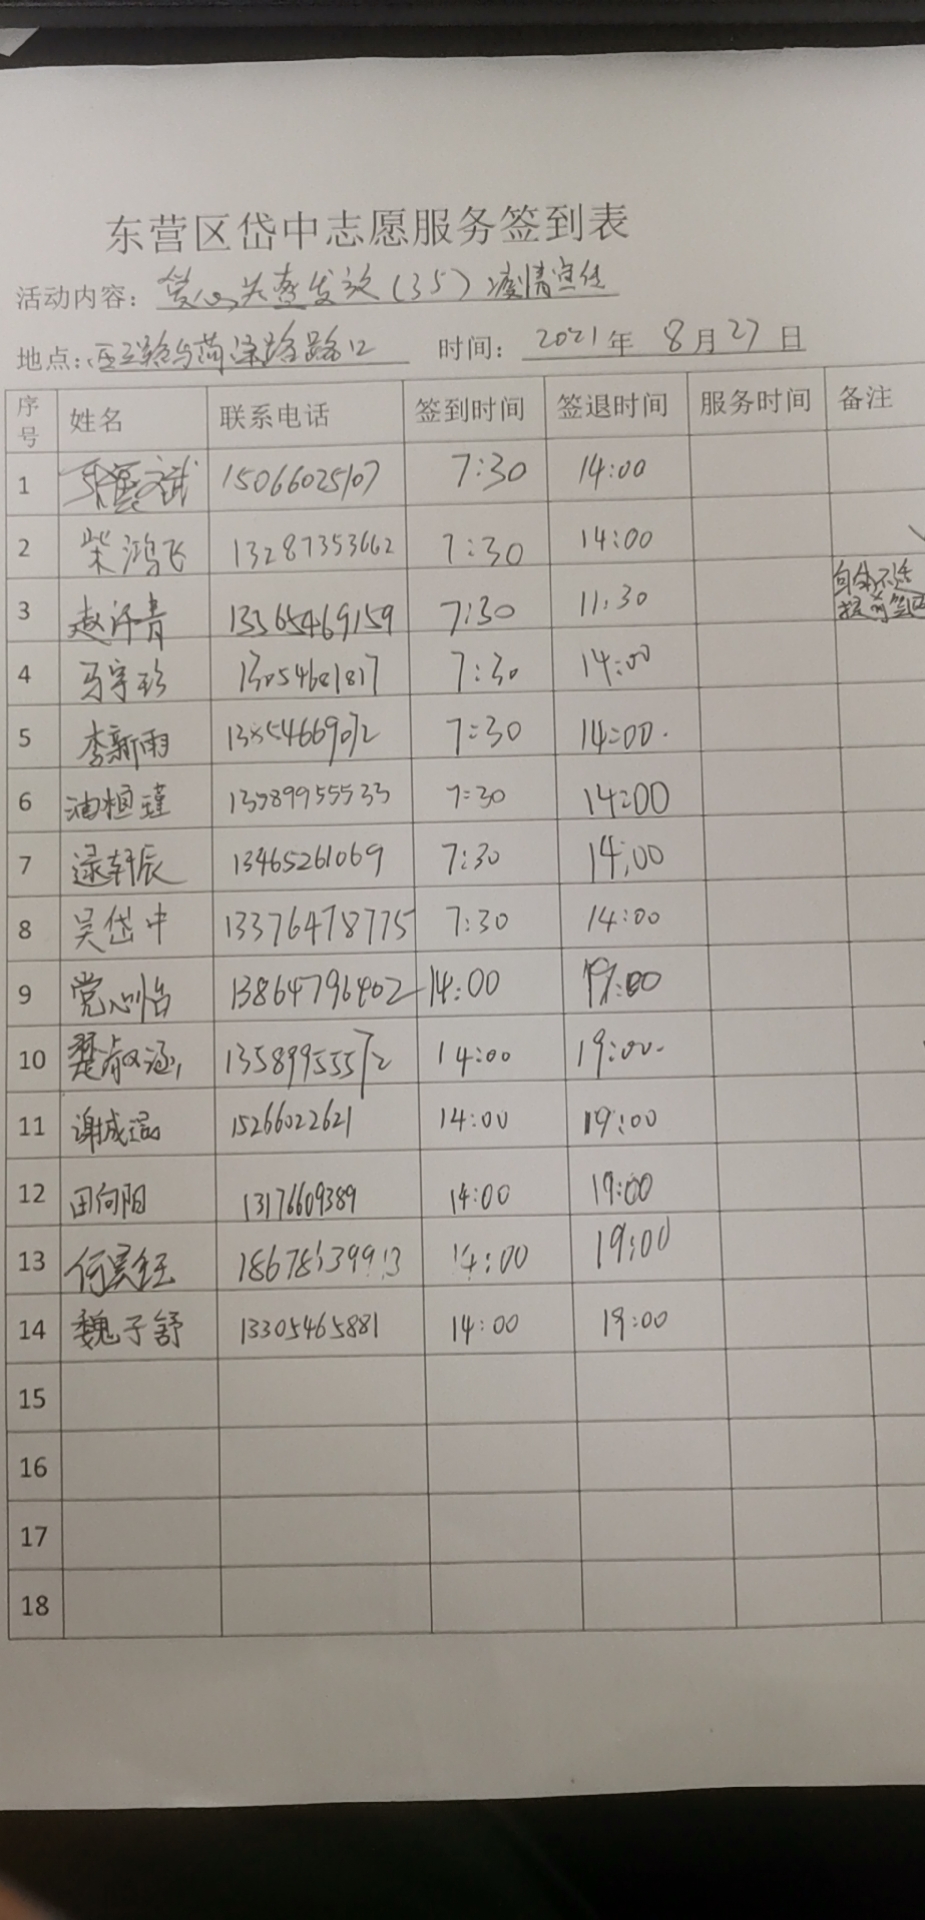 东营区岱中志愿服务签到表
活动内容：爱心发放（35）疫情宣传
地点：与菏泽路路口 时间：2021年 8月27日
序号 姓名 联系电话 签到时间 签退时间 服务时间 备注
1 文斌 15066025107 7:30 14:00
2 柴鸿飞 13287353662 7:30 14:00
3 赵汗青 13365469159 7:30 11:30 身体不适 提前签退
4 马宇珍 13054681817 7:30 14:00
5 李新雨 7:30 14:00.
6 油恒瑾 13589955533 7:30 14:00
7 逯轩辰 13465261069 7:30 14:00
8 吴岱中 13376478775 7:30 14:00
9 党心怡 13864796402 14:00 19:00
10 楚淑涵 13589955572 14:00 19:00.
11 谢成 15266022621 14:00 19:00
12 田向阳 13176609389 14:00 19:00
13 何昊钰 18678139913 14:00 19:00
14 魏子舒 13305465881 14:00 19:00
15
16
17
18